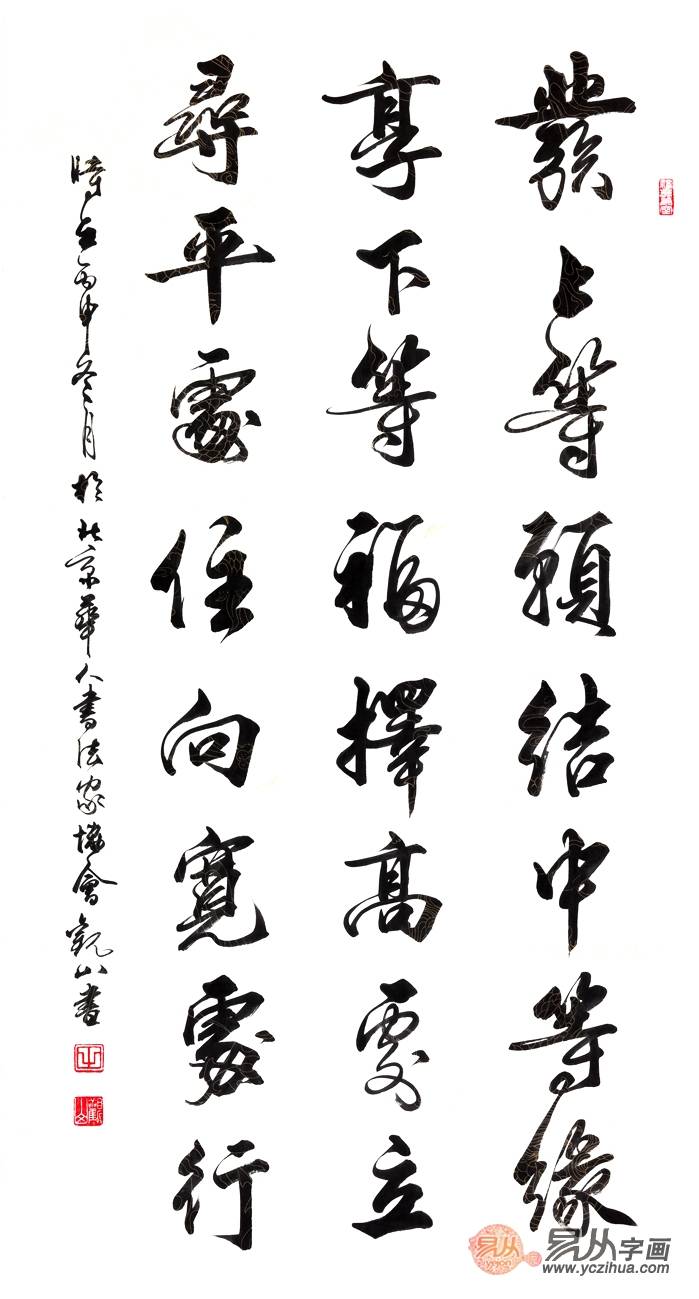 發上等願結中等緣
享下等福擇高處立
尋平處住向寬處行
時在丙申冬月於北京華人書法家協會觀山書
易从
易从字画
www.yczihua.com